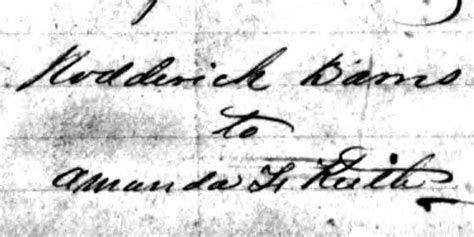 Rodderick Dams
to
Amanda F. Keith